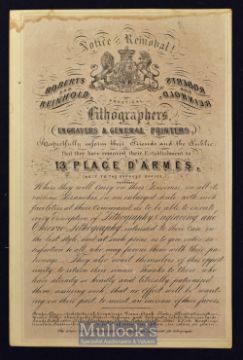 Notice of Removal!
ROBERTS
AND
REINHOLD
ROBERTS
REINHOLD
PRACTICAL
Lithographers,
ENGRAVERS & GENERAL PRINTERS
Respectfully inform their Friends and the Public,
That they have removed their Establishment to
13, PLACE D'ARMES,
NEXT TO THE EXPRESS OFFICE,
Where they will carry on their Business, in all its
various Branches, on an enlarged scale, with such
facilities at their Command as to be able to execute
every description of Lithography, Engraving and
Chromo Lithography, intrusted to their care in
the best style, and at such prices, as to give entire sa-
tisfaction to all, who may favour them with their pa-
tronage. They also avail themselves of this oppor-
tunity to return their sincere thanks to those, who
have already so kindly and liberally patronized
them, assuring such, that no effort will be want-
ing on their part, to merit an increase of their favors.
Mullock's